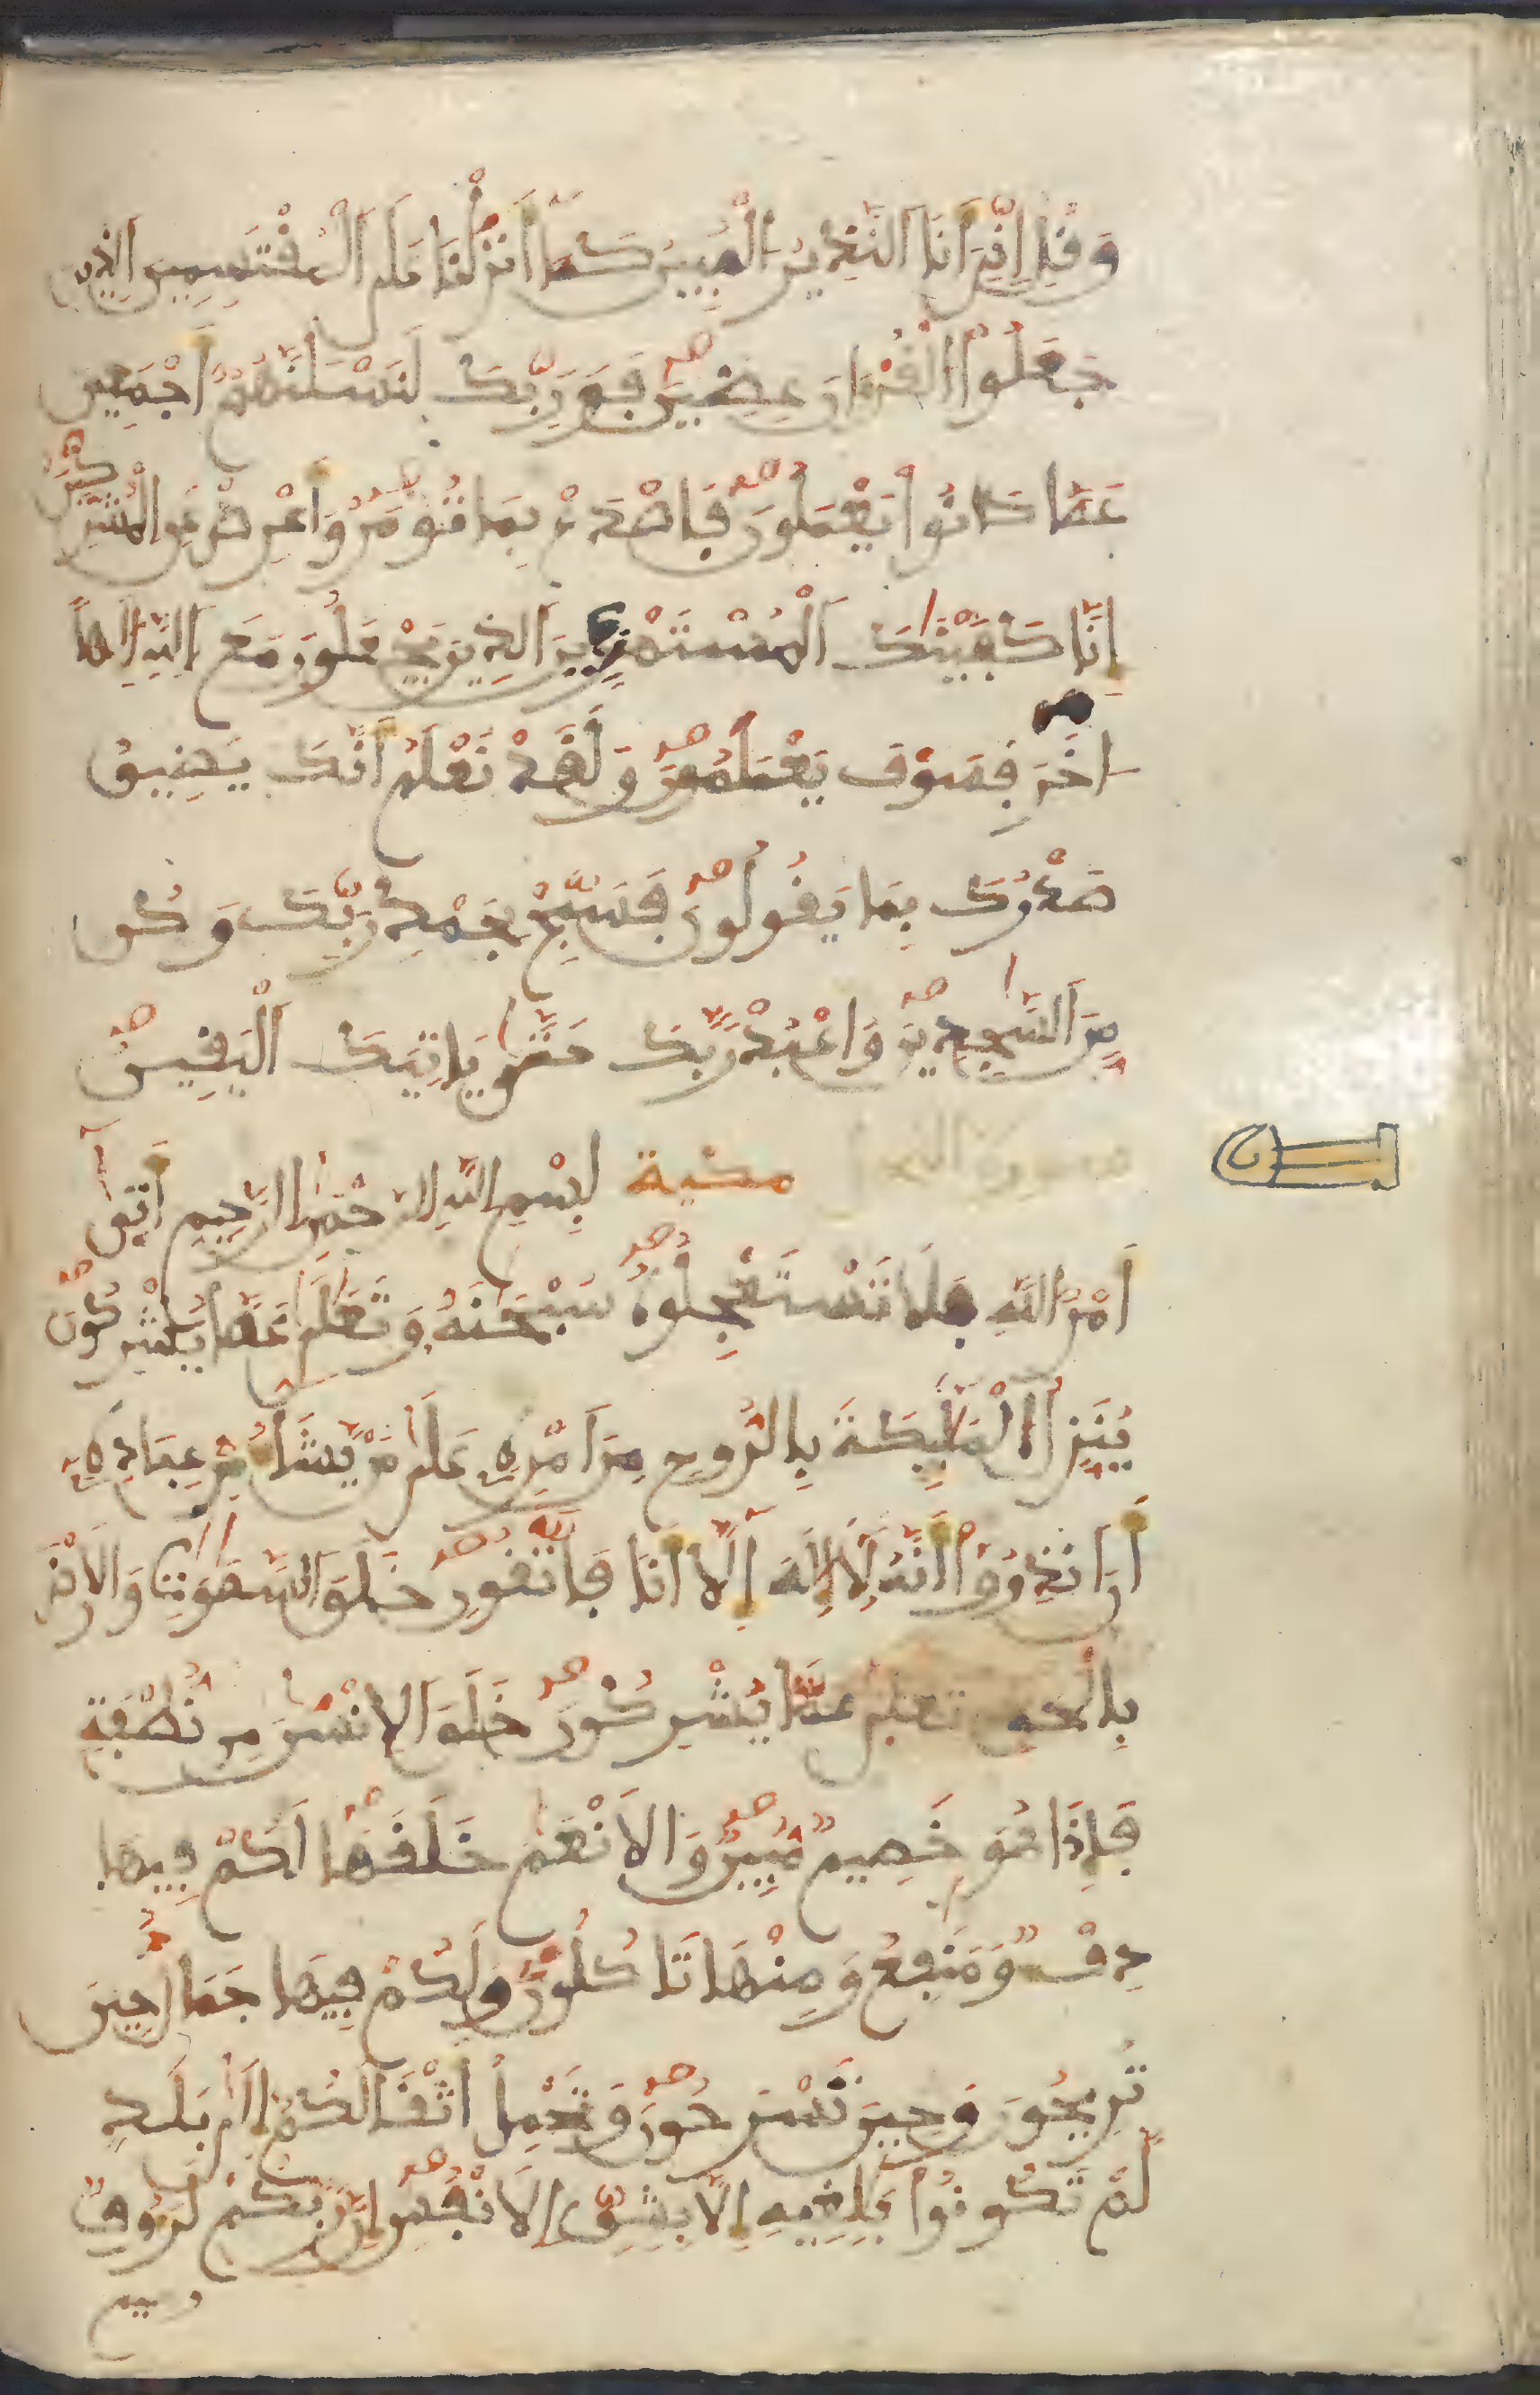 وَقُلِ اِنِّيَ أَنَا اَلنَّذِيرُ اَلْمُبِينُ كَمَا أَنزَلْنَا عَلَى اَلْمُقْتَسِمِينَ اَلذِينَ
جَعَلُواْ اُلْقُرْءَانَ عِضِينَ فَوَرَبِّكَ لَنَسْـَٔلَنَّهُمُۥٓ أَجْمَعِينَ
عَمَّا كَانُواْ يَعْمَلُونَ فَاصْدَعْ بِمَا تُومَرُ وَأَعْرِضْ عَنِ اِلْمُشْرِكِينَ
إِنَّا كَفَيْنَٰكَ اَلْمُسْتَهْزِءِينَ اَلذِينَ يَجْعَلُونَ مَعَ اَللَّهِ إِلَٰهاً
اخَرَ فَسَوْفَ يَعْلَمُونَ وَلَقَدْ نَعْلَمُ أَنَّكَ يَضِيقُ
صَدْرُكَ بِمَا يَقُولُونَ فَسَبِّحْ بِحَمْدِ رَبِّكَ وَكُن
مِّنَ اَلسَّٰجِدِينَ وَاعْبُدْ رَبَّكَ حَتَّىٰ يَاتِيَكَ اَلْيَقِينُ
سورة النحل مكية بِسْمِ اللَّهِ الرَّحْمَٰنِ الرَّحِيمِ أَتَىٰٓ
أَمْرُ اُللَّهِ فَلَا تَسْتَعْجِلُوهُ سُبْحَٰنَهُۥ وَتَعَٰلَىٰ عَمَّا يُشْرِكُونَ
يُنَزِّلُ اُلْمَلَٰٓئِكَةَ بِالرُّوحِ مِنَ اَمْرِهِۦ عَلَىٰ مَنْ يَّشَآءُ مِنْ عِبَادِهِۦٓ
أَنَ اَنذِرُوٓاْ أَنَّهُۥ لَآ إِلَٰهَ إِلَّآ أَنَا فَاتَّقُونِ خَلَقَ اَلسَّمَٰوَٰتِ وَالَارْضَ
بِالْحَقِّ تَعَٰلَىٰ عَمَّا يُشْرِكُونَ خَلَقَ اَلِانسَٰنَ مِن نُّطْفَةٍ
فَإِذَا هُوَ خَصِيمٌ مُّبِينٌ وَالَانْعَٰمَ خَلَقَهَا لَكُمْ فِيهَا
دِفْءٌ وَمَنَٰفِعُ وَمِنْهَا تَاكُلُونَ وَلَكُمْ فِيهَا جَمَالٌ حِينَ
تُرِيحُونَ وَحِينَ تَسْرَحُونَ وَتَحْمِلُ أَثْقَالَكُمُۥٓ إِلَىٰ بَلَدٍ
لَّمْ تَكُونُواْ بَٰلِغِيهِ إِلَّا بِشِقِّ اِلَانفُسِ إِنَّ رَبَّكُمْ لَرَءُوفٌ
رحيم